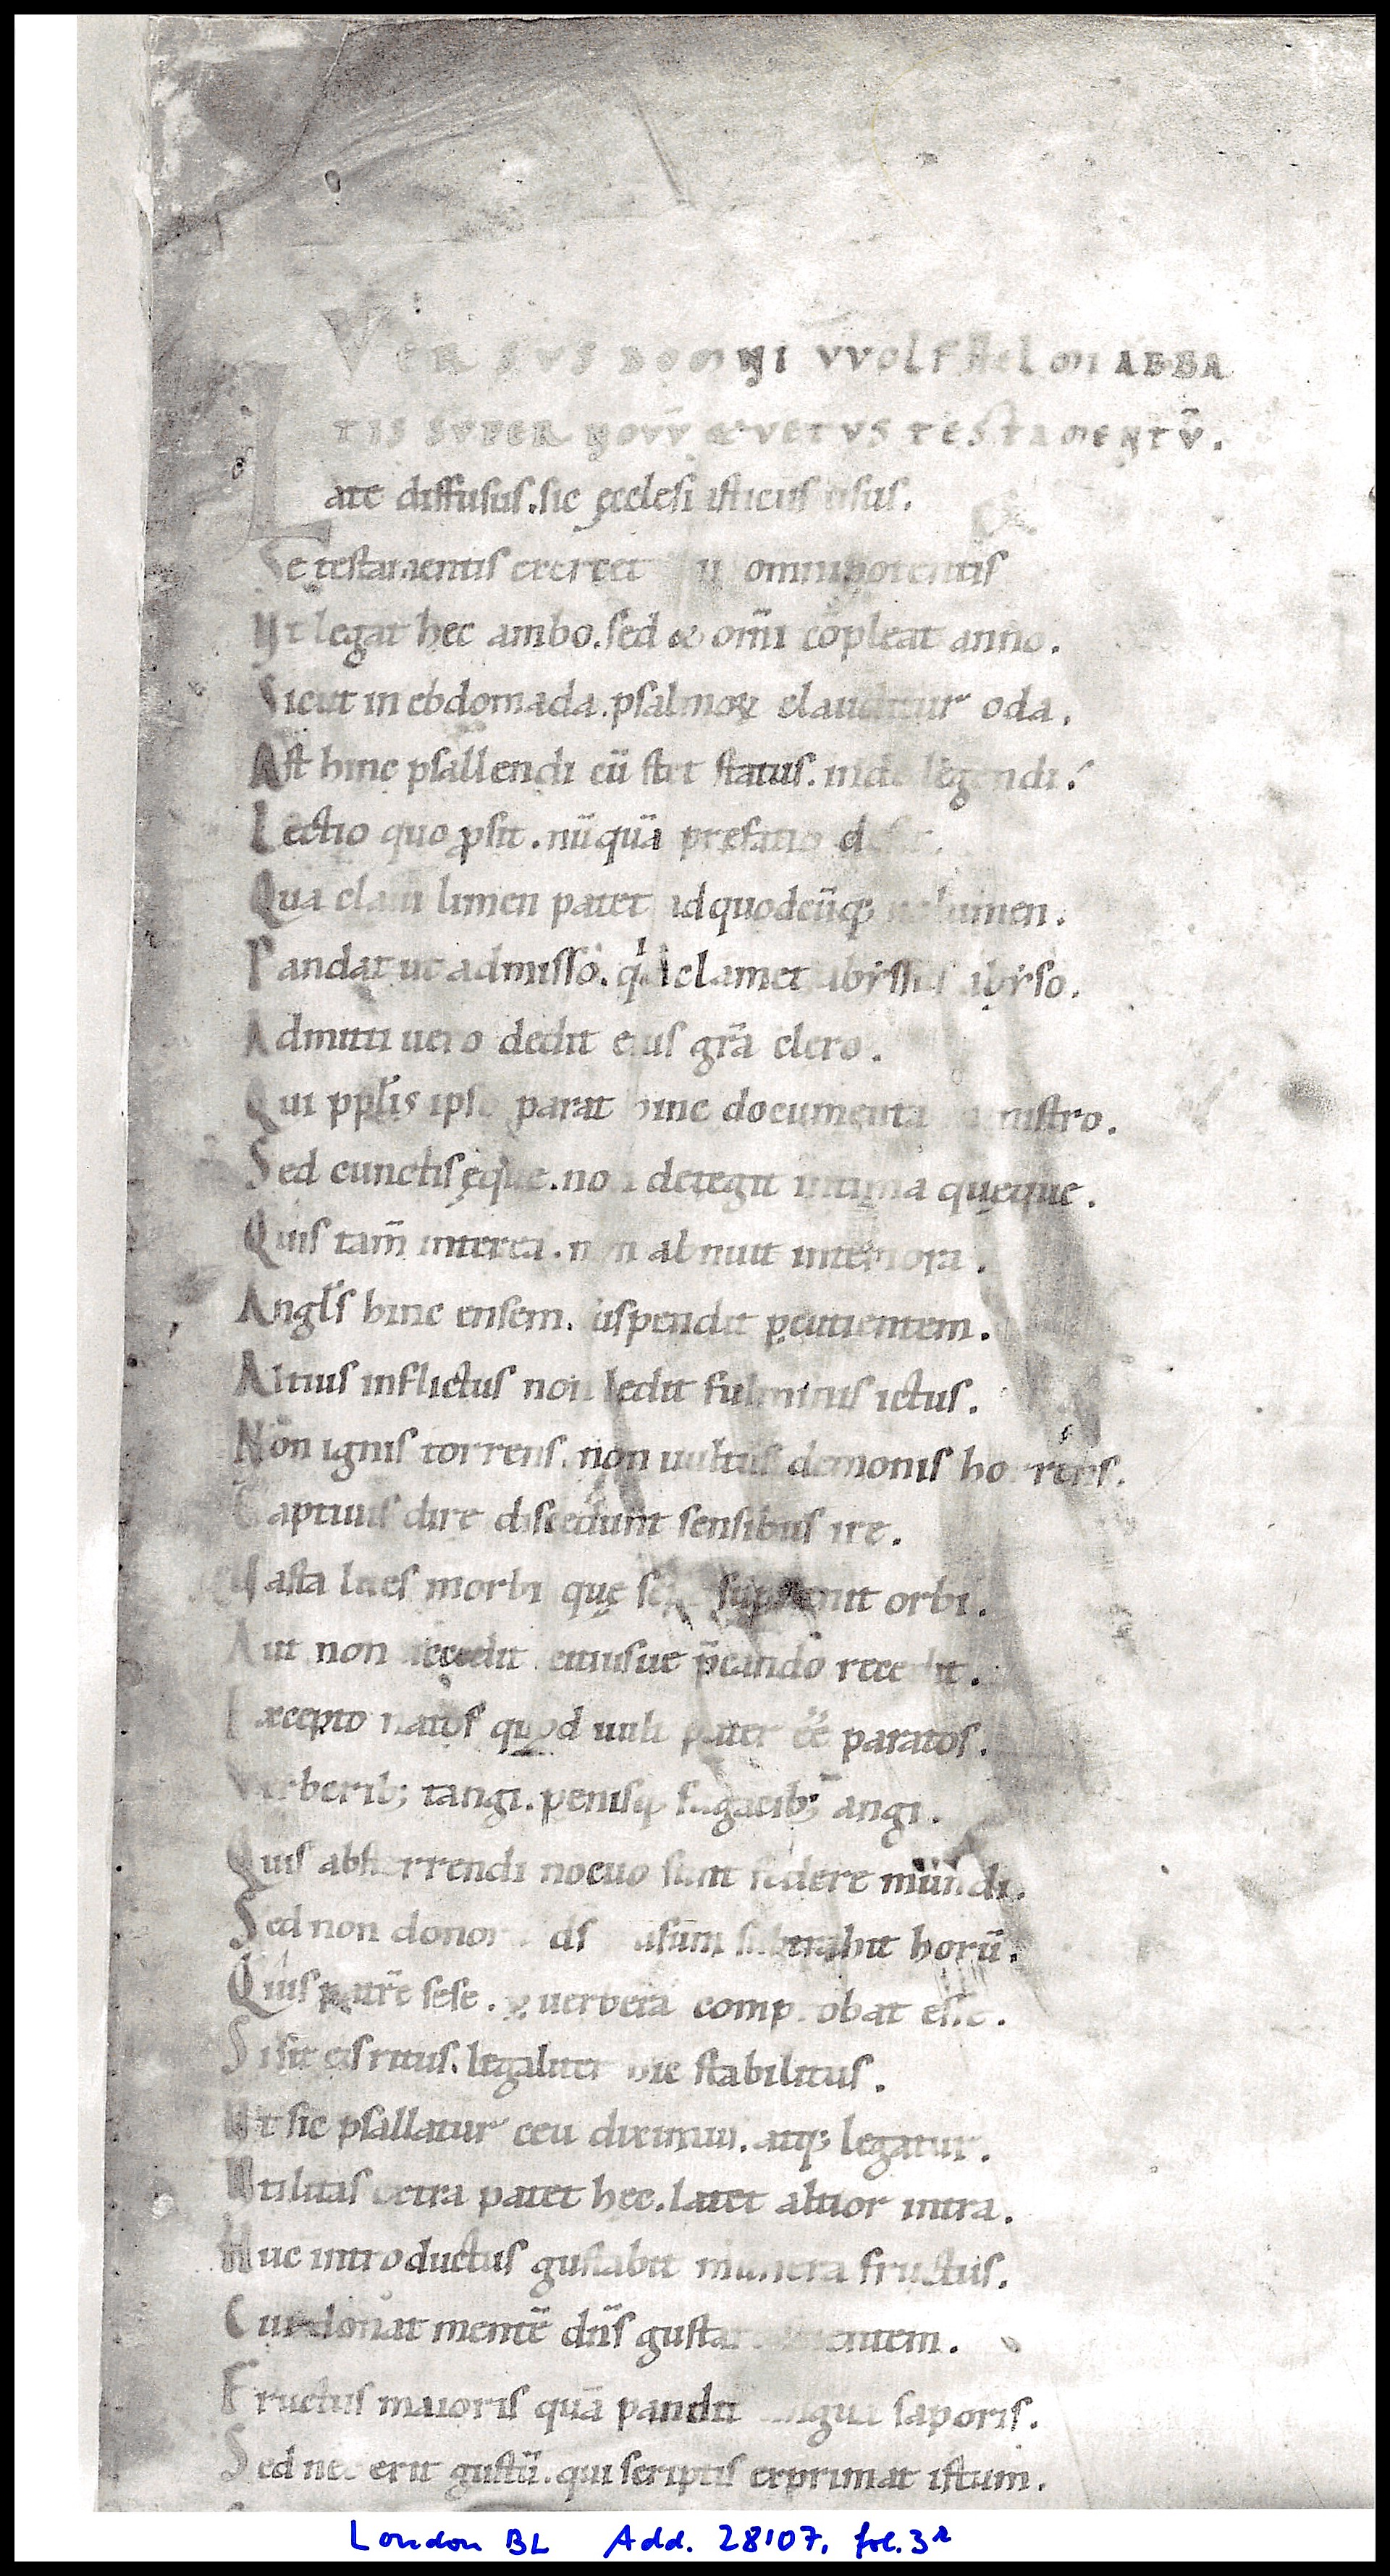 VERSVS DOMNI VVOLFHELMI ABBA
TIS SVPER NOVŪ & VETVS TESTAMENTŪ.
Late diffusus. sic ęcclesiasticus usus.
Se testamentis exercet omnipotentis
Vt legat hec ambo. sed & om̄i cōpleat anno.
Sicut in ebdomada. psalmoꝝ clauditur oda.
Ast hinc psallendi cū stet status. inde legendi.
Lectio quo ꝓsit. nūquā prefatio desit.
Qua clam limen patet id quodcūq; uolumen.
Pandat ut admisso. clamet abyssus abysso.
Admitti uero dedit eius gr̄a clero.
Qui ppl̄is ipse parat hinc documenta
Sed cunctis ęque. non detegit intima quęque.
Quis tam̄ interea. non abnuit interiora.
Angl̄s hinc ensem. suspendit ꝑcutientem.
Altius inflictus non ledit fulminis ictus.
Non ignis torrens. non uultus demonis horrens.
Captiuis dire discedunt sensibus ire.
Vasta lues morbi quę orbi.
Aut non accedit cuiusue p̄cando recedit.
Excepto natos quod uult pater ēē paratos.
Verberib; tangi. penisq; fugacib; angi.
Quis abhorrendi nocuo sunt federe mundi.
Sed non donorū ds̄ usum subtrahit horū.
Quis patrē sese. ꝑ uerbera comprobat esse.
Si sit eis ritus. legaliter hic stabilitus.
Vt sic psallatur ceu diximus. atq; legatur.
Vtilitas extra patet hec. latet altior intra.
Huc introductus gustabit munera fructus.
Cui donat mentē dn̄s gustare
Fructus maioris quā pandit lingua saporis.
Sed nec erit gustū. qui scriptis exprimat istum.
London BL Add. 28107, fol. 3r